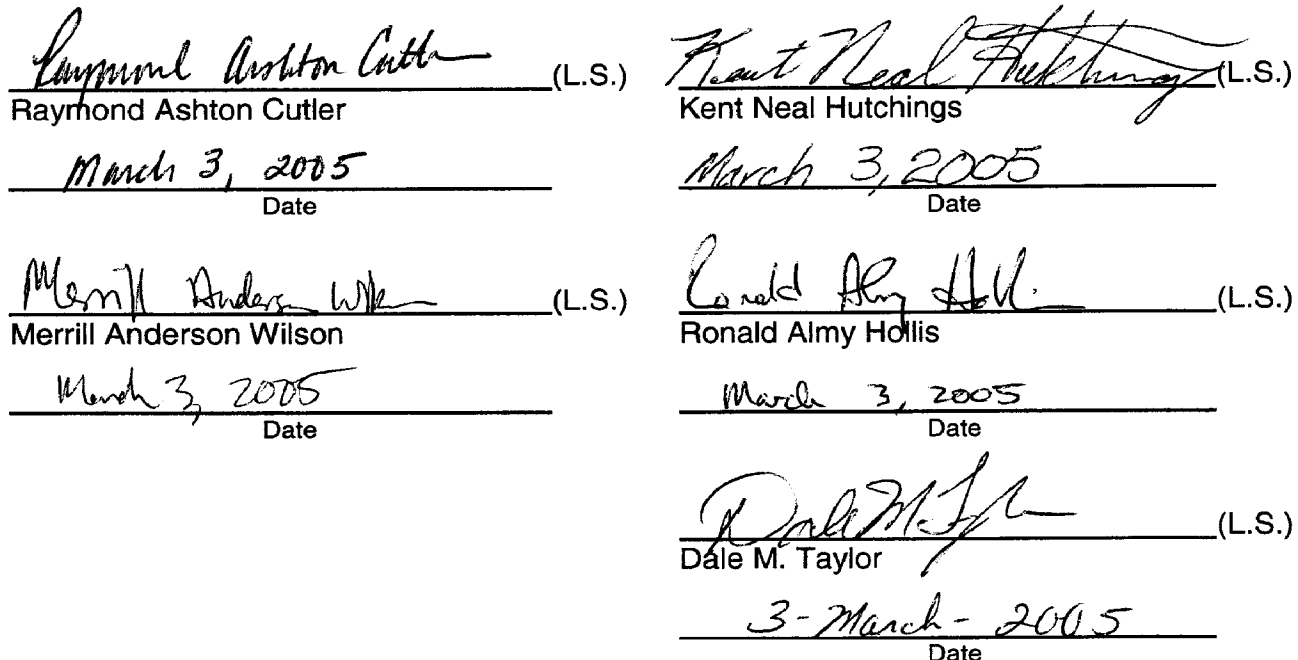 Raymond Ashton Cutler (L.S.)
Raymond Ashton Cutler
March 3, 2005
Date
Merrill Anderson Wilson (L.S.)
Merrill Anderson Wilson
March 3, 2005
Date
Kent Neal Hutchings (L.S.)
Kent Neal Hutchings
March 3, 2005
Date
Ronald Almy Hollis (L.S.)
Ronald Almy Hollis
March 3, 2005
Date
Dale M. Taylor (L.S.)
Dale M. Taylor
3-March-2005
Date